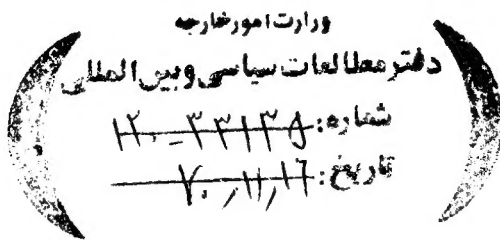 وزارت امور خارجه
دفتر مطالعات سیاسی و بین المللی
شماره: ۱۲۰-۳۳۱۳۵
تاریخ: ۷۰/۱۱/۱۶